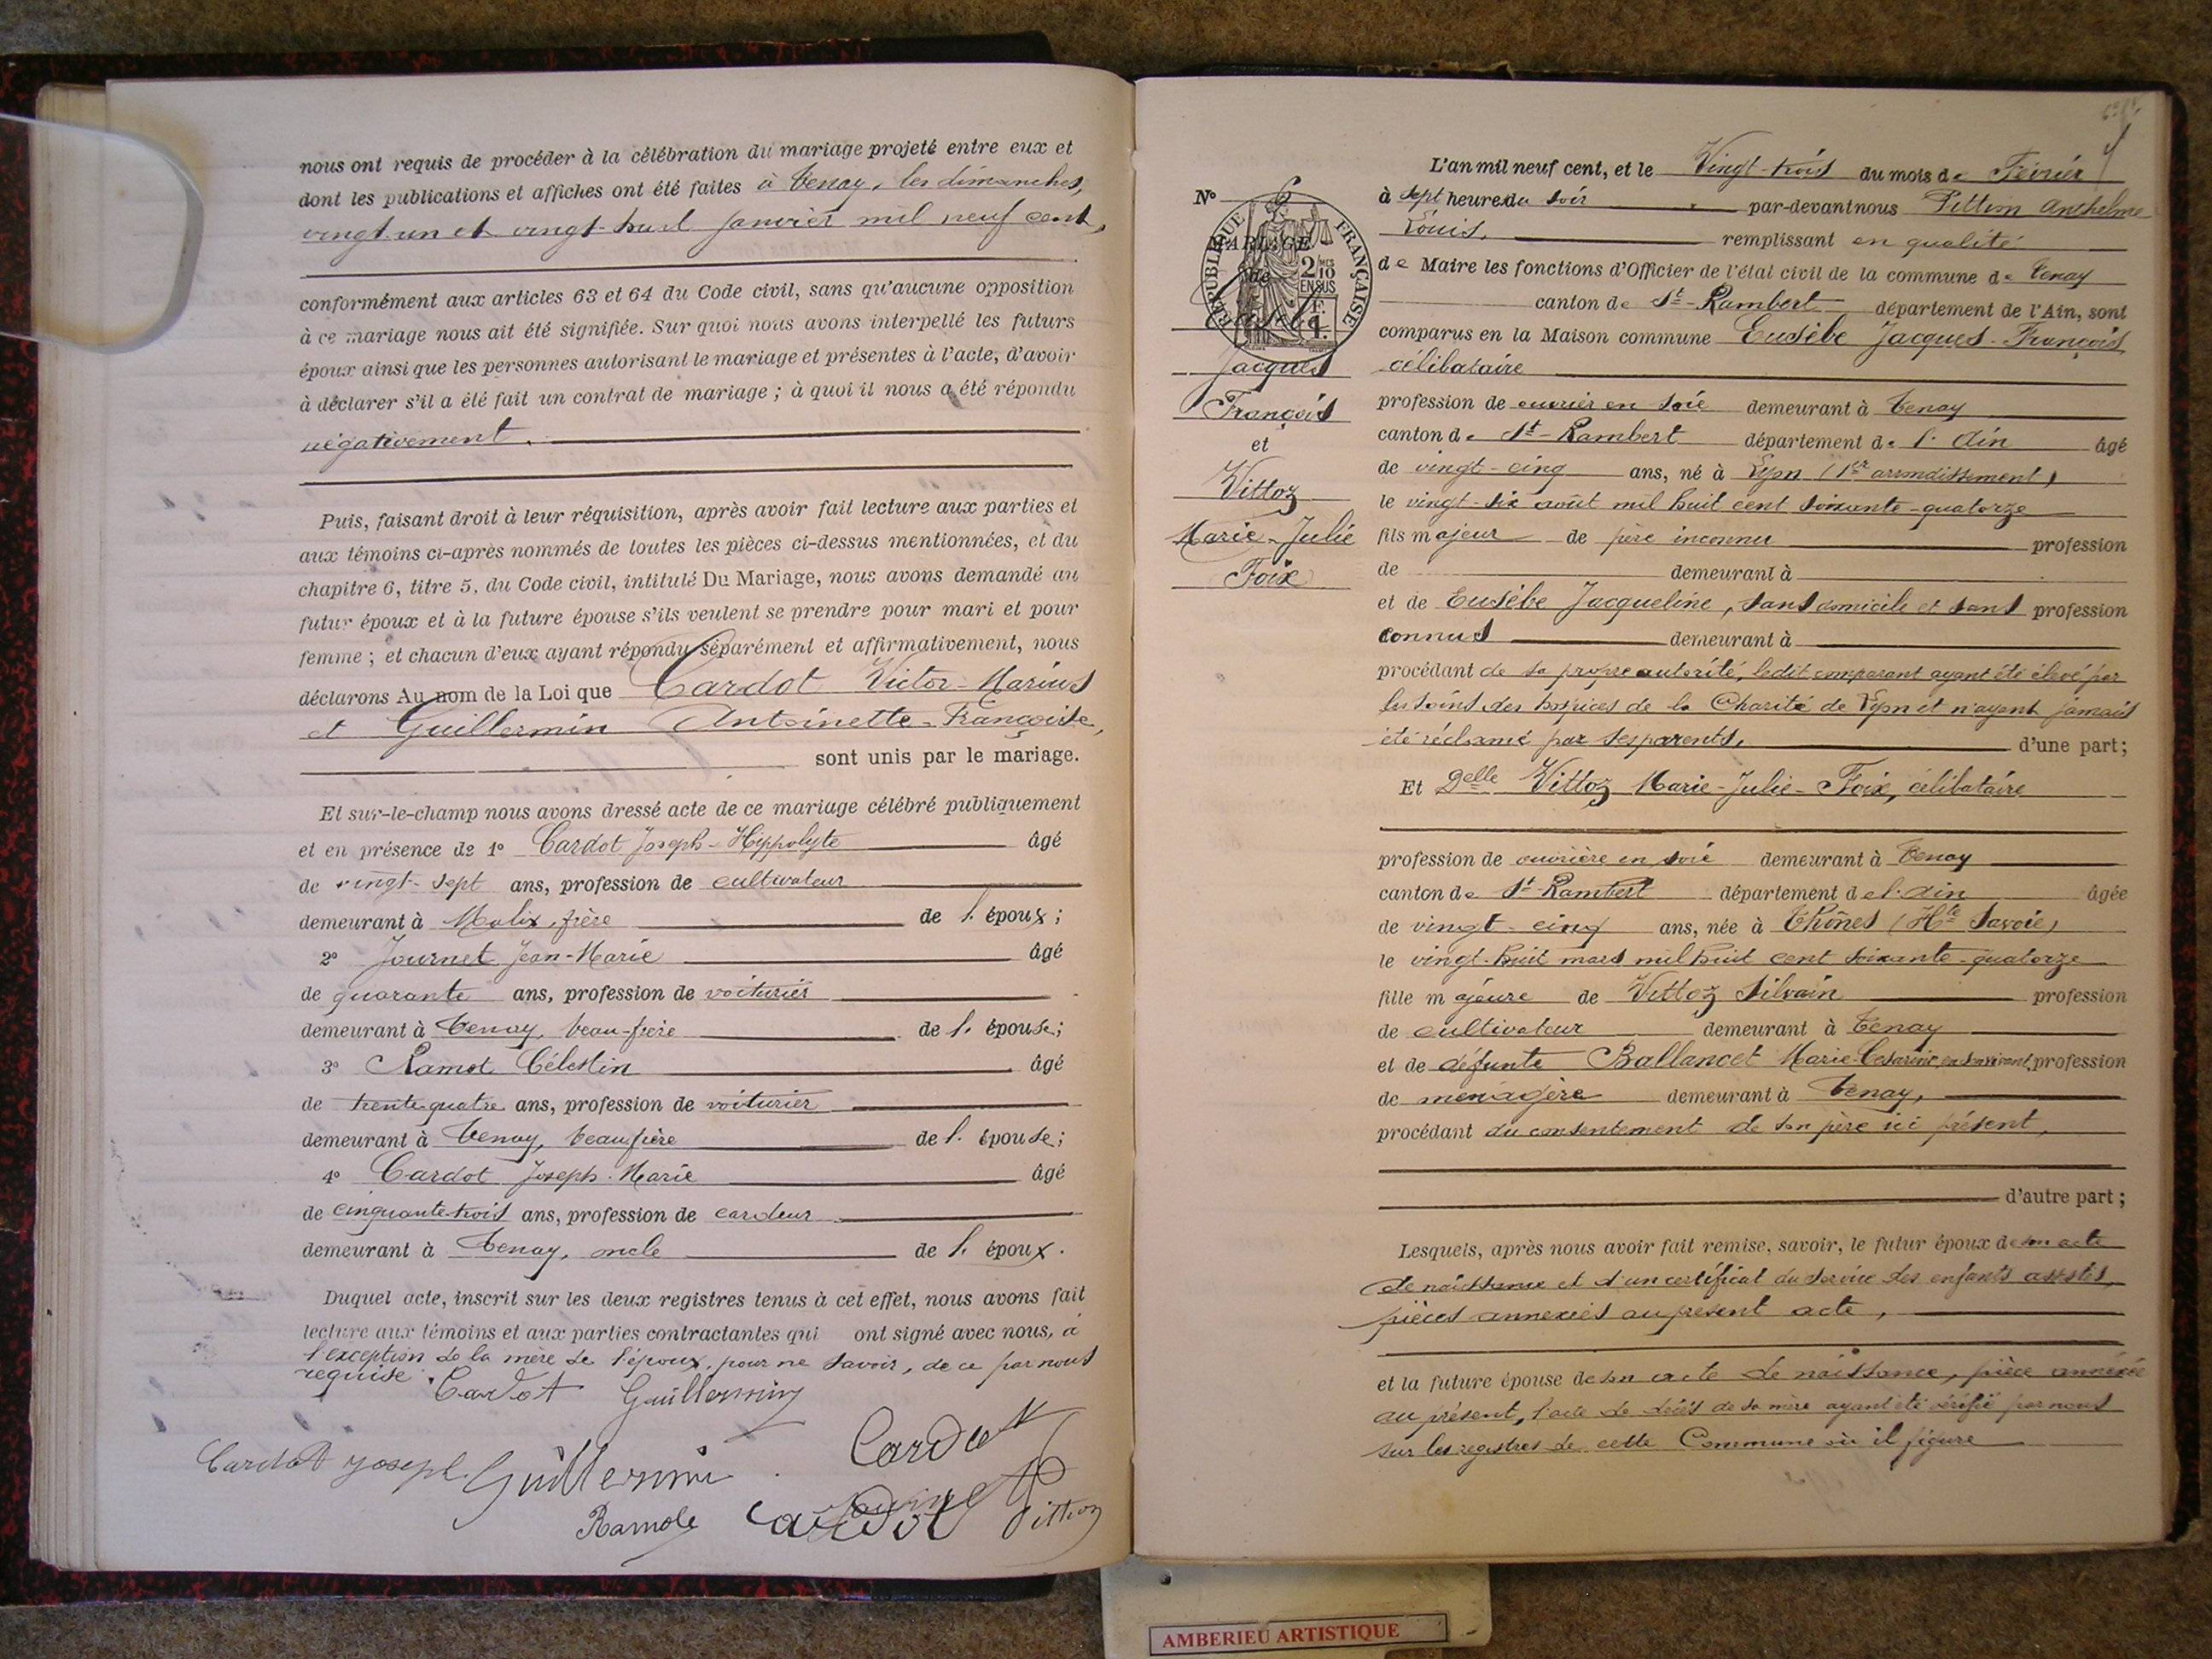 nous ont requis de procéder à la célébration du mariage projeté entre eux et
dont les publications et affiches ont été faites à Tenay, les dimanches,
vingt-un et vingt-huit janvier mil neuf cent,
conformément aux articles 63 et 64 du Code civil, sans qu'aucune opposition
à ce mariage nous ait été signifiée. Sur quoi nous avons interpellé les futurs
époux ainsi que les personnes autorisant le mariage et présentes à l'acte, d'avoir
à déclarer s'il a été fait un contrat de mariage ; à quoi il nous a été répondu
négativement.
Puis, faisant droit à leur réquisition, après avoir fait lecture aux parties et
aux témoins ci-après nommés de toutes les pièces ci-dessus mentionnées, et du
chapitre 6, titre 5, du Code civil, intitulé Du Mariage, nous avons demandé au
futur époux et à la future épouse s'ils veulent se prendre pour mari et pour
femme ; et chacun d'eux ayant répondu séparément et affirmativement, nous
déclarons Au nom de la Loi que Cardot Victor-Marius
et Guillermin Antoinette-Françoise,
sont unis par le mariage.
Et sur-le-champ nous avons dressé acte de ce mariage célébré publiquement
et en présence de 1° Cardot Joseph-Hippolyte âgé
de vingt-sept ans, profession de cultivateur
demeurant à Molix, frère de l' époux ;
2° Journet Jean-Marie âgé
de quarante ans, profession de voiturier
demeurant à Tenay, beau-frère de l' épouse ;
3° Ramot Célestin âgé
de trente-quatre ans, profession de voiturier
demeurant à Tenay, beau-frère de l' épouse ;
4° Cardot Joseph-Marie âgé
de cinquante-trois ans, profession de cardeur
demeurant à Tenay, oncle de l' époux.
Duquel acte, inscrit sur les deux registres tenus à cet effet, nous avons fait
lecture aux témoins et aux parties contractantes qui ont signé avec nous, à
l'exception de la mère de l'époux, pour ne savoir, de ce par nous
requise.
Cardot Guillermin
Cardot Joseph Guillermin Cardot
Ramot Cardot Pittion
L'an mil neuf cent, et le Vingt-trois du mois de Février
à sept heures du soir par-devant nous Pittion Anthelme
Louis, remplissant en qualité
de Maire les fonctions d'Officier de l'état civil de la commune de Tenay
canton de St-Rambert département de l'Ain, sont
comparus en la Maison commune Eusèbe Jacques-François
célibataire
profession de ouvrier en soie demeurant à Tenay
canton de St-Rambert département de l'Ain âgé
de vingt-cinq ans, né à Lyon (1er arrondissement)
le vingt-six août mil huit cent soixante-quatorze
fils majeur de père inconnu profession
de demeurant à
et de Eusèbe Jacqueline, sans domicile et sans profession
connus demeurant à
procédant de sa propre autorité, ledit comparant ayant été élevé par
les soins des hospices de la Charité de Lyon et n'ayant jamais
été réclamé par ses parents, d'une part ;
Et Delle Vittoz Marie-Julie-Foix, célibataire
profession de ouvrière en soie demeurant à Tenay
canton de St-Rambert département de l'Ain âgée
de vingt-cinq ans, née à Thônes (Hte Savoie)
le vingt-huit mars mil huit cent soixante-quatorze
fille majeure de Vittoz Silvain profession
de cultivateur demeurant à Tenay
et de défunte Ballancet Marie-Césarine, en son vivant, profession
de ménagère demeurant à Tenay,
procédant du consentement de son père ici présent,
d'autre part ;
Lesquels, après nous avoir fait remise, savoir, le futur époux de son acte
de naissance et d'un certificat du service des enfants assistés,
pièces annexées au présent acte,
et la future épouse de son acte de naissance, pièce annexée
au présent, l'acte de décès de sa mère ayant été vérifié par nous
sur les registres de cette Commune où il figure
N° 6
MARIAGE
de
Jacques
François
et
Vittoz
Marie-Julie
Foix
RÉPUBLIQUE FRANÇAISE
2/10 MES EN SUS
1 F.
AMBERIEU ARTISTIQUE